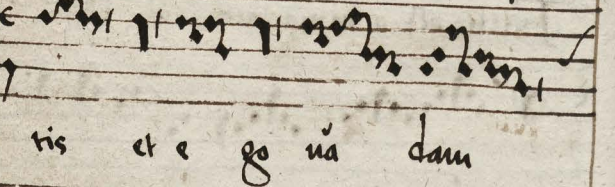 tis et e go uã dam